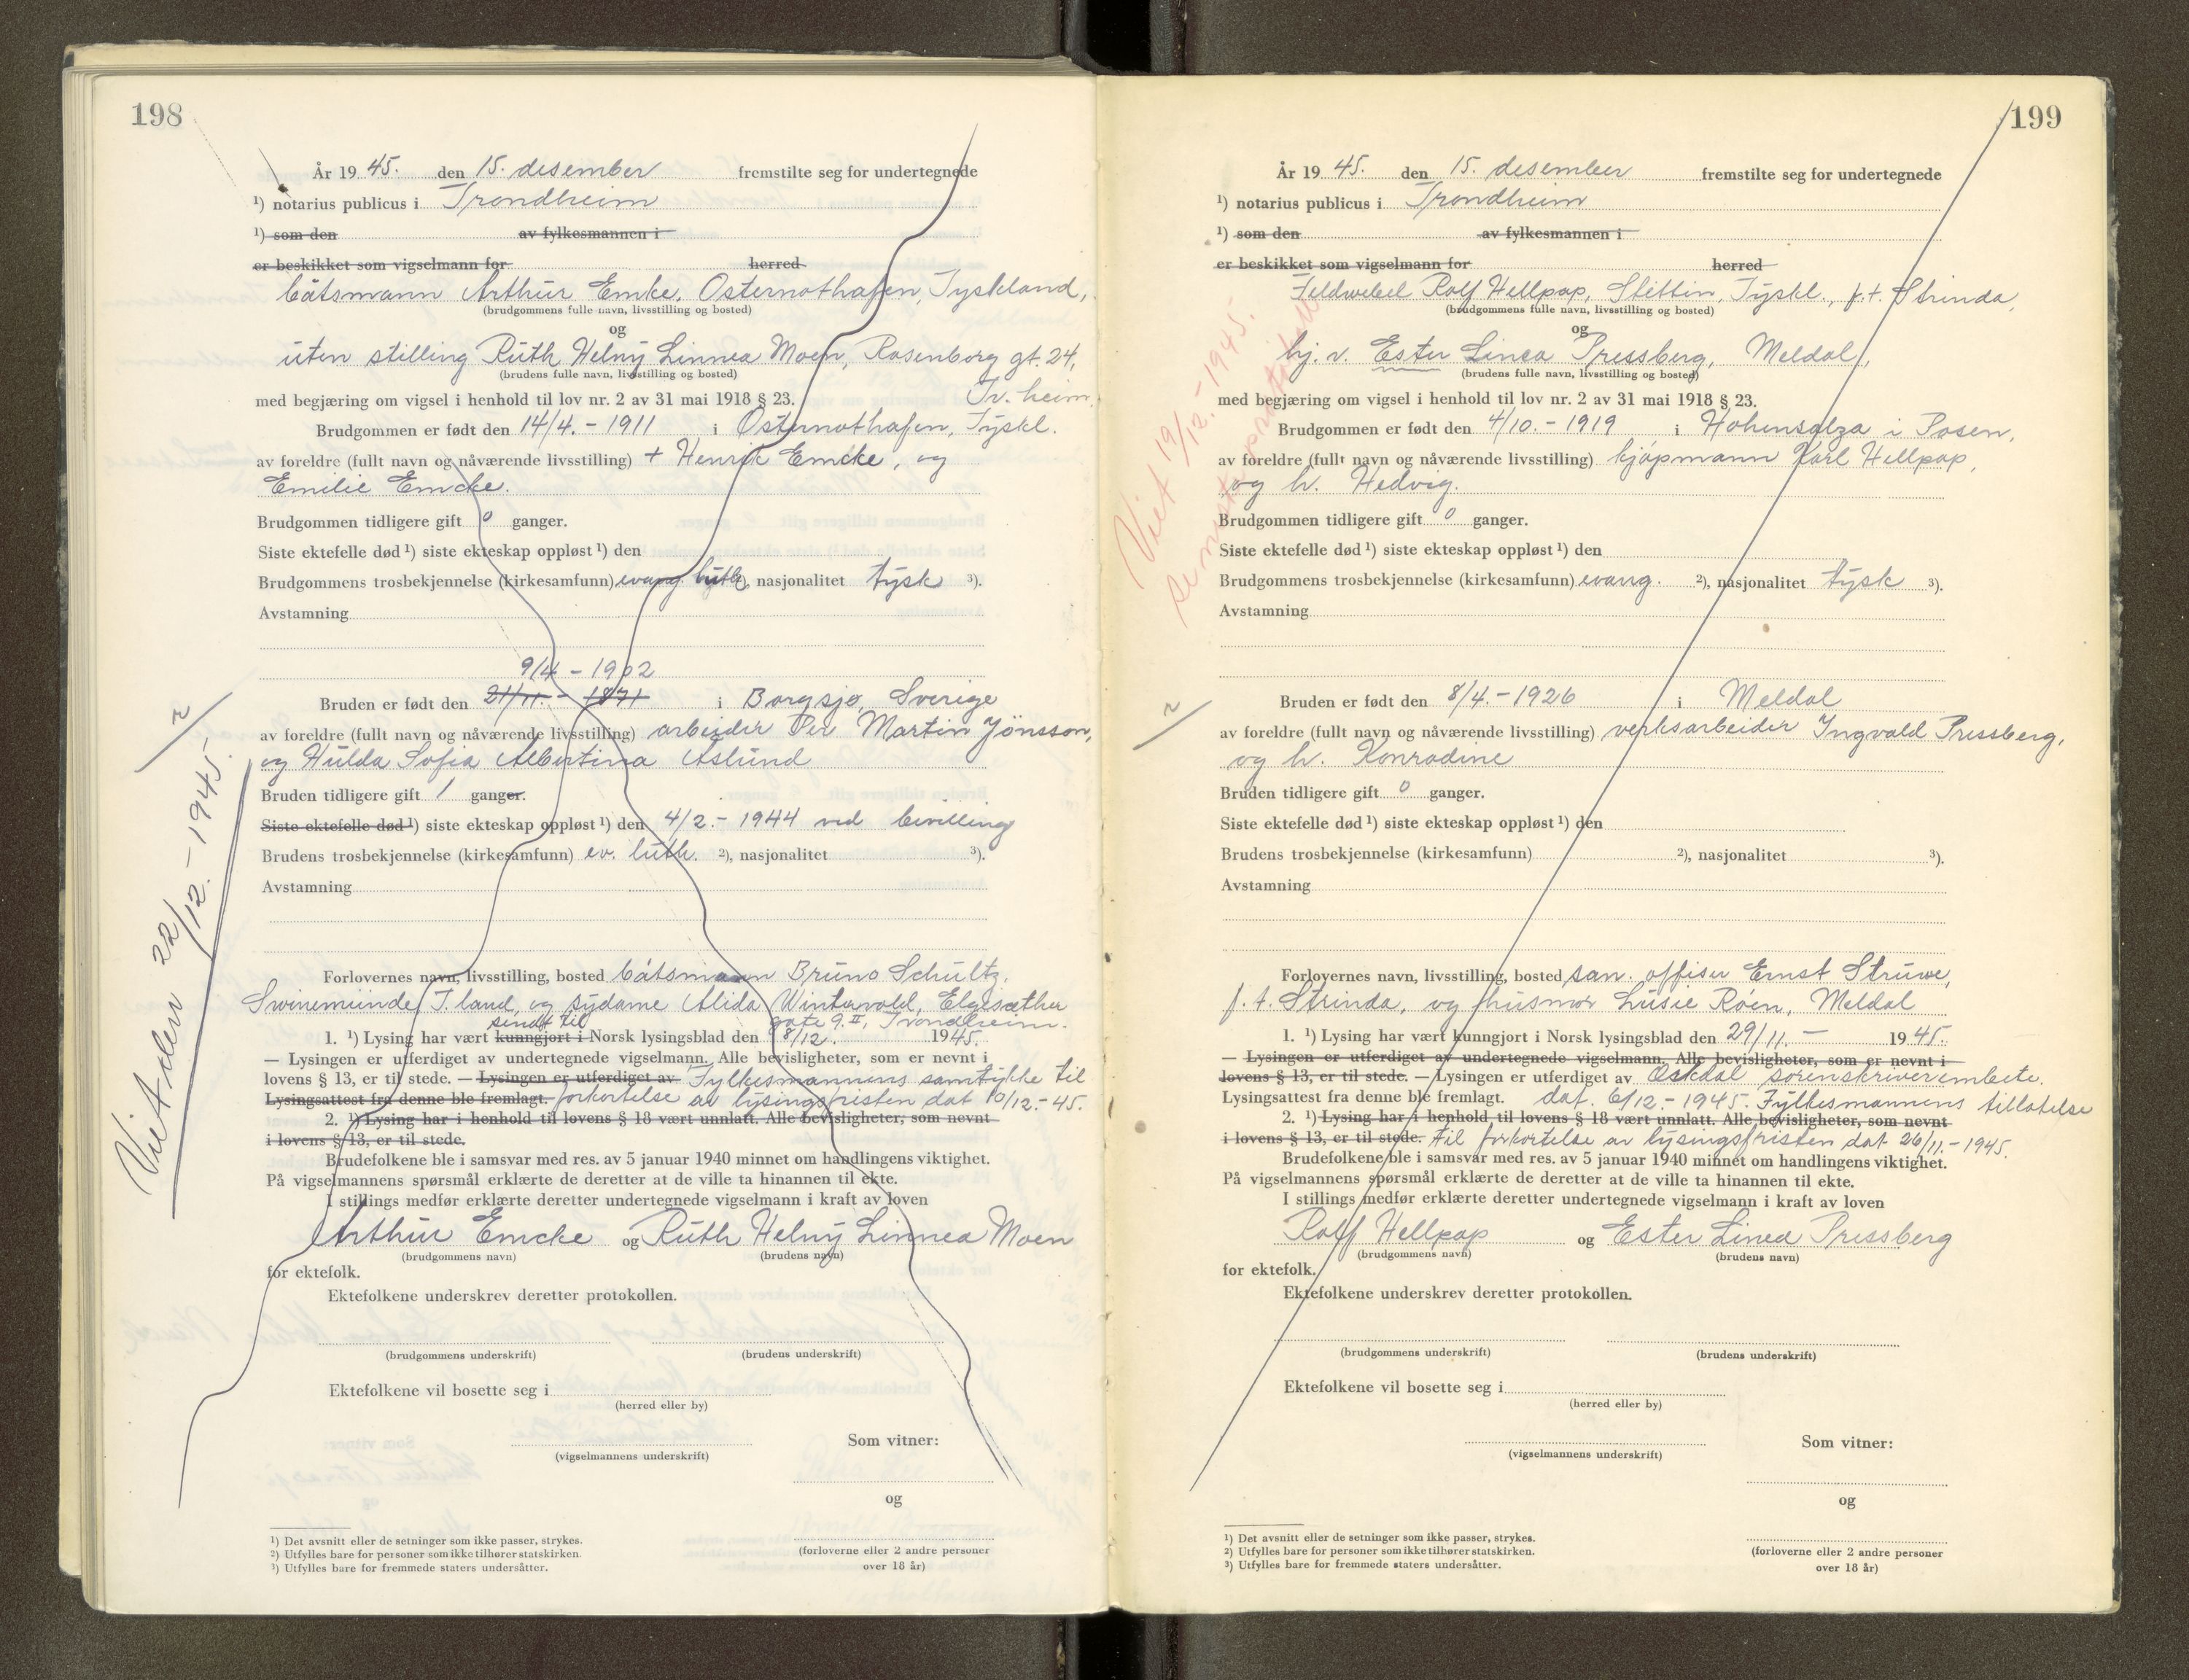 198
År 19 45. den 15. desember fremstilte seg for undertegnede
¹) notarius publicus i Trondheim
¹) som den av fylkesmannen i
er beskikket som vigselmann for herred
båtsmann Arthur Emke, Osternothafen, Tyskland,
(brudgommens fulle navn, livsstilling og bosted)
og
uten stilling Ruth Helny Linnea Moen, Rosenborg gt. 24,
(brudens fulle navn, livsstilling og bosted)
Tr.heim.
med begjæring om vigsel i henhold til lov nr. 2 av 31 mai 1918 § 23.
Brudgommen er født den 14/4. - 1911 i Osternothafen, Tyskl.
av foreldre (fullt navn og nåværende livsstilling) + Henrik Emcke, og
Emilie Emcke.
Brudgommen tidligere gift 0 ganger.
Siste ektefelle død ¹) siste ekteskap oppløst ¹) den
Brudgommens trosbekjennelse (kirkesamfunn) evang. luth. ²), nasjonalitet tysk ³).
Avstamning
9/4 - 1902
Bruden er født den 21/11. - 1871 i Borgsjø, Sverige
av foreldre (fullt navn og nåværende livsstilling) arbeider Per Martin Jönsson,
og Hulda Sofia Albertina Aslund
Bruden tidligere gift 1 ganger.
Siste ektefelle død ¹) siste ekteskap oppløst ¹) den 4/2. - 1944 ved bevilling
Brudens trosbekjennelse (kirkesamfunn) ev. luth. ²), nasjonalitet ³).
Avstamning
Forlovernes navn, livsstilling, bosted båtsmann Bruno Schultz,
Swinemünde, T.land, og sydame Alida Wintervold, Elgesæther
sendt til gate 9.II, Trondheim.
1. ¹) Lysing har vært kunngjort i Norsk lysingsblad den 8/12. 1945.
— Lysingen er utferdiget av undertegnede vigselmann. Alle bevisligheter, som er nevnt i
lovens § 13, er til stede. — Lysingen er utferdiget av Fylkesmannens samtykke til
Lysingsattest fra denne ble fremlagt. forkortelse av lysingsfristen dat 10/12. - 45.
2. ¹) Lysing har i henhold til lovens § 18 vært unnlatt. Alle bevisligheter, som nevnt
i lovens § 13, er til stede.
Brudefolkene ble i samsvar med res. av 5 januar 1940 minnet om handlingens viktighet.
På vigselmannens spørsmål erklærte de deretter at de ville ta hinannen til ekte.
I stillings medfør erklærte deretter undertegnede vigselmann i kraft av loven
Arthur Emcke og Ruth Helny Linnea Moen
(brudgommens navn) (brudens navn)
for ektefolk.
Ektefolkene underskrev deretter protokollen.
(brudgommens underskrift) (brudens underskrift)
Ektefolkene vil bosette seg i
(herred eller by)
Som vitner:
(vigselmannens underskrift)
og
¹) Det avsnitt eller de setninger som ikke passer, strykes.
²) Utfylles bare for personer som ikke tilhører statskirken.
³) Utfylles bare for fremmede staters undersåtter.
(forloverne eller 2 andre personer
over 18 år)
22/12. - 1945.
199
År 19 45. den 15. desember fremstilte seg for undertegnede
¹) notarius publicus i Trondheim
¹) som den av fylkesmannen i
er beskikket som vigselmann for herred
Feldwebel Rolf Hellpap, Stettin, Tyskl., f.t. Strinda,
(brudgommens fulle navn, livsstilling og bosted)
og
hj. v. Ester Linea Pressberg, Meldal,
(brudens fulle navn, livsstilling og bosted)
med begjæring om vigsel i henhold til lov nr. 2 av 31 mai 1918 § 23.
Brudgommen er født den 4/10. - 1919 i Hohensalza i Posen,
av foreldre (fullt navn og nåværende livsstilling) kjøpmann Karl Hellpap,
og h. Hedvig.
Brudgommen tidligere gift 0 ganger.
Siste ektefelle død ¹) siste ekteskap oppløst ¹) den
Brudgommens trosbekjennelse (kirkesamfunn) evang. ²), nasjonalitet tysk ³).
Avstamning
Viet 19/12. - 1945.
Bruden er født den 8/4. - 1926 i Meldal
av foreldre (fullt navn og nåværende livsstilling) verksarbeider Ingvald Pressberg,
og h. Konradine
Bruden tidligere gift 0 ganger.
Siste ektefelle død ¹) siste ekteskap oppløst ¹) den
Brudens trosbekjennelse (kirkesamfunn) ²), nasjonalitet ³).
Avstamning
Forlovernes navn, livsstilling, bosted san. offiser Ernst Struwe,
f. t. Strinda, og husmor Lusie Røen, Meldal
1. ¹) Lysing har vært kunngjort i Norsk lysingsblad den 29/11. - 1945.
— Lysingen er utferdiget av undertegnede vigselmann. Alle bevisligheter, som er nevnt i
lovens § 13, er til stede. — Lysingen er utferdiget av Orkdal sorenskriverembete.
Lysingsattest fra denne ble fremlagt. dat. 6/12. - 1945. Fylkesmannens tillatelse
2. ¹) Lysing har i henhold til lovens § 18 vært unnlatt. Alle bevisligheter, som nevnt
i lovens § 13, er til stede. til forkortelse av lysingsfristen dat 26/11. - 1945.
Brudefolkene ble i samsvar med res. av 5 januar 1940 minnet om handlingens viktighet.
På vigselmannens spørsmål erklærte de deretter at de ville ta hinannen til ekte.
I stillings medfør erklærte deretter undertegnede vigselmann i kraft av loven
Rolf Hellpap og Ester Linea Pressberg
(brudgommens navn) (brudens navn)
for ektefolk.
Ektefolkene underskrev deretter protokollen.
(brudgommens underskrift) (brudens underskrift)
Ektefolkene vil bosette seg i
(herred eller by)
Som vitner:
(vigselmannens underskrift)
og
¹) Det avsnitt eller de setninger som ikke passer, strykes.
²) Utfylles bare for personer som ikke tilhører statskirken.
³) Utfylles bare for fremmede staters undersåtter.
(forloverne eller 2 andre personer
over 18 år)